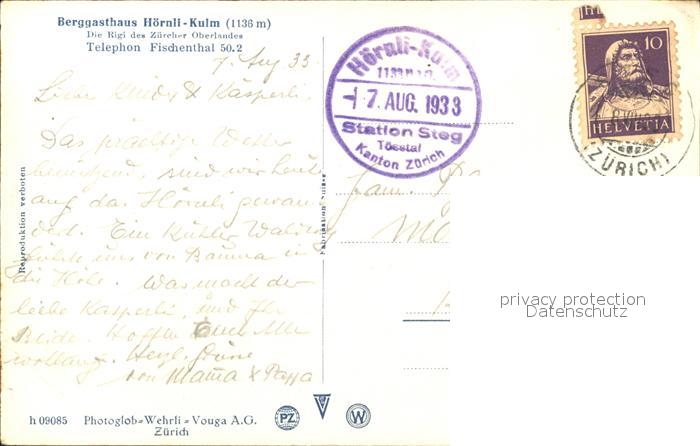 Berggasthaus Hörnli-Kulm (1136 m)
Die Rigi des Zürcher Oberlandes
Telephon Fischenthal 50.2
7. Aug 33.
Liebe & Kasperli.
Das prächtige Wetter
sind wir heute
auf das Hörnli gewan
dert. Ein kühler
führte uns von Bauma in
die Höhe. Was macht der
liebe Kasperli, und Ihr
Beide. Hoffe Euch Alle
wohlauf. Herzl. Grüsse
von Mama & Pappa
Reproduktion verboten
Fabrication Suisse
Hörnli-Kulm
1133 m ü. M.
7. AUG. 1933
Station Steg
Tösstal
Kanton Zürich
10
HELVETIA
(ZÜRICH)
Fam.
privacy protection
Datenschutz
h 09085 Photoglob-Wehrli-Vouga A.G.
Zürich
PZ
V
W